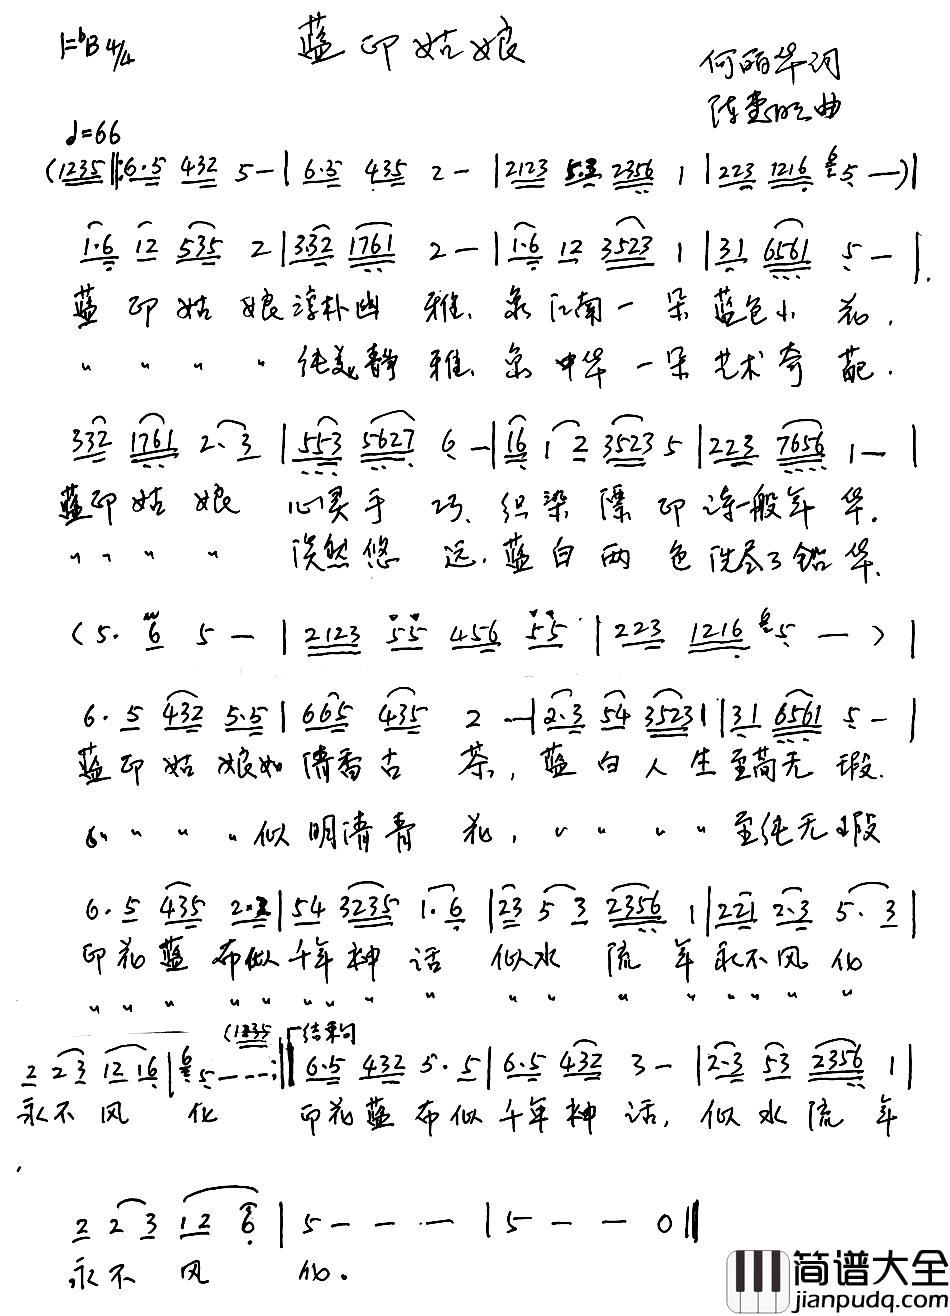 1=♭B 4/4
蓝印姑娘
何丽华词
陈 曲
♩=66
(1235‖:6·5 432 5-|6·5 435 2-|2123 5·3 2356 1|223 1216 5—)|
1·6 12 535 2|332 1761 2-|1·6 12 3523 1|31 6561 5-|
蓝印姑娘淳朴幽雅,来江南一朵蓝色小花,
〃 〃 〃 〃 纯美静雅,京中华一朵艺术奇葩.
332 1761 2·3|553 5627 6-|16 1 2 3523 5|223 7656 1-|
蓝印姑娘 心灵手巧,织染漂印诗一般年华.
〃 〃 〃 〃 淡然悠远,蓝白两色洗尽了铅华.
(5· 6 5-|2123 55 456 55|223 1216 5—)|
6·5 432 5·5|665 435 2-|2·3 54 3523 1|31 6561 5-|
蓝印姑娘如清香古茶,蓝白人生至简无瑕.
〃 〃 〃 〃似明清青花,〃 〃 〃 〃至纯无瑕
6·5 435 2·2|54 3235 1·6|23 5 3 2356 1|221 2·3 5·3|
印花蓝布似千年神话 似水流年永不风化
〃 〃 〃 〃 〃 〃 〃 〃 〃 〃 〃 〃 〃 〃 〃 〃 〃
(1235 结束句
2 2 3 12 16|5---:‖6·5 432 5·5|6·5 432 3-|2·3 53 2356 1|
永不风化 印花蓝布似千年神话,似水流年
2 2 3 1 2 6|5---|5--0‖
永不风化.
简谱大全
jianpudq.com